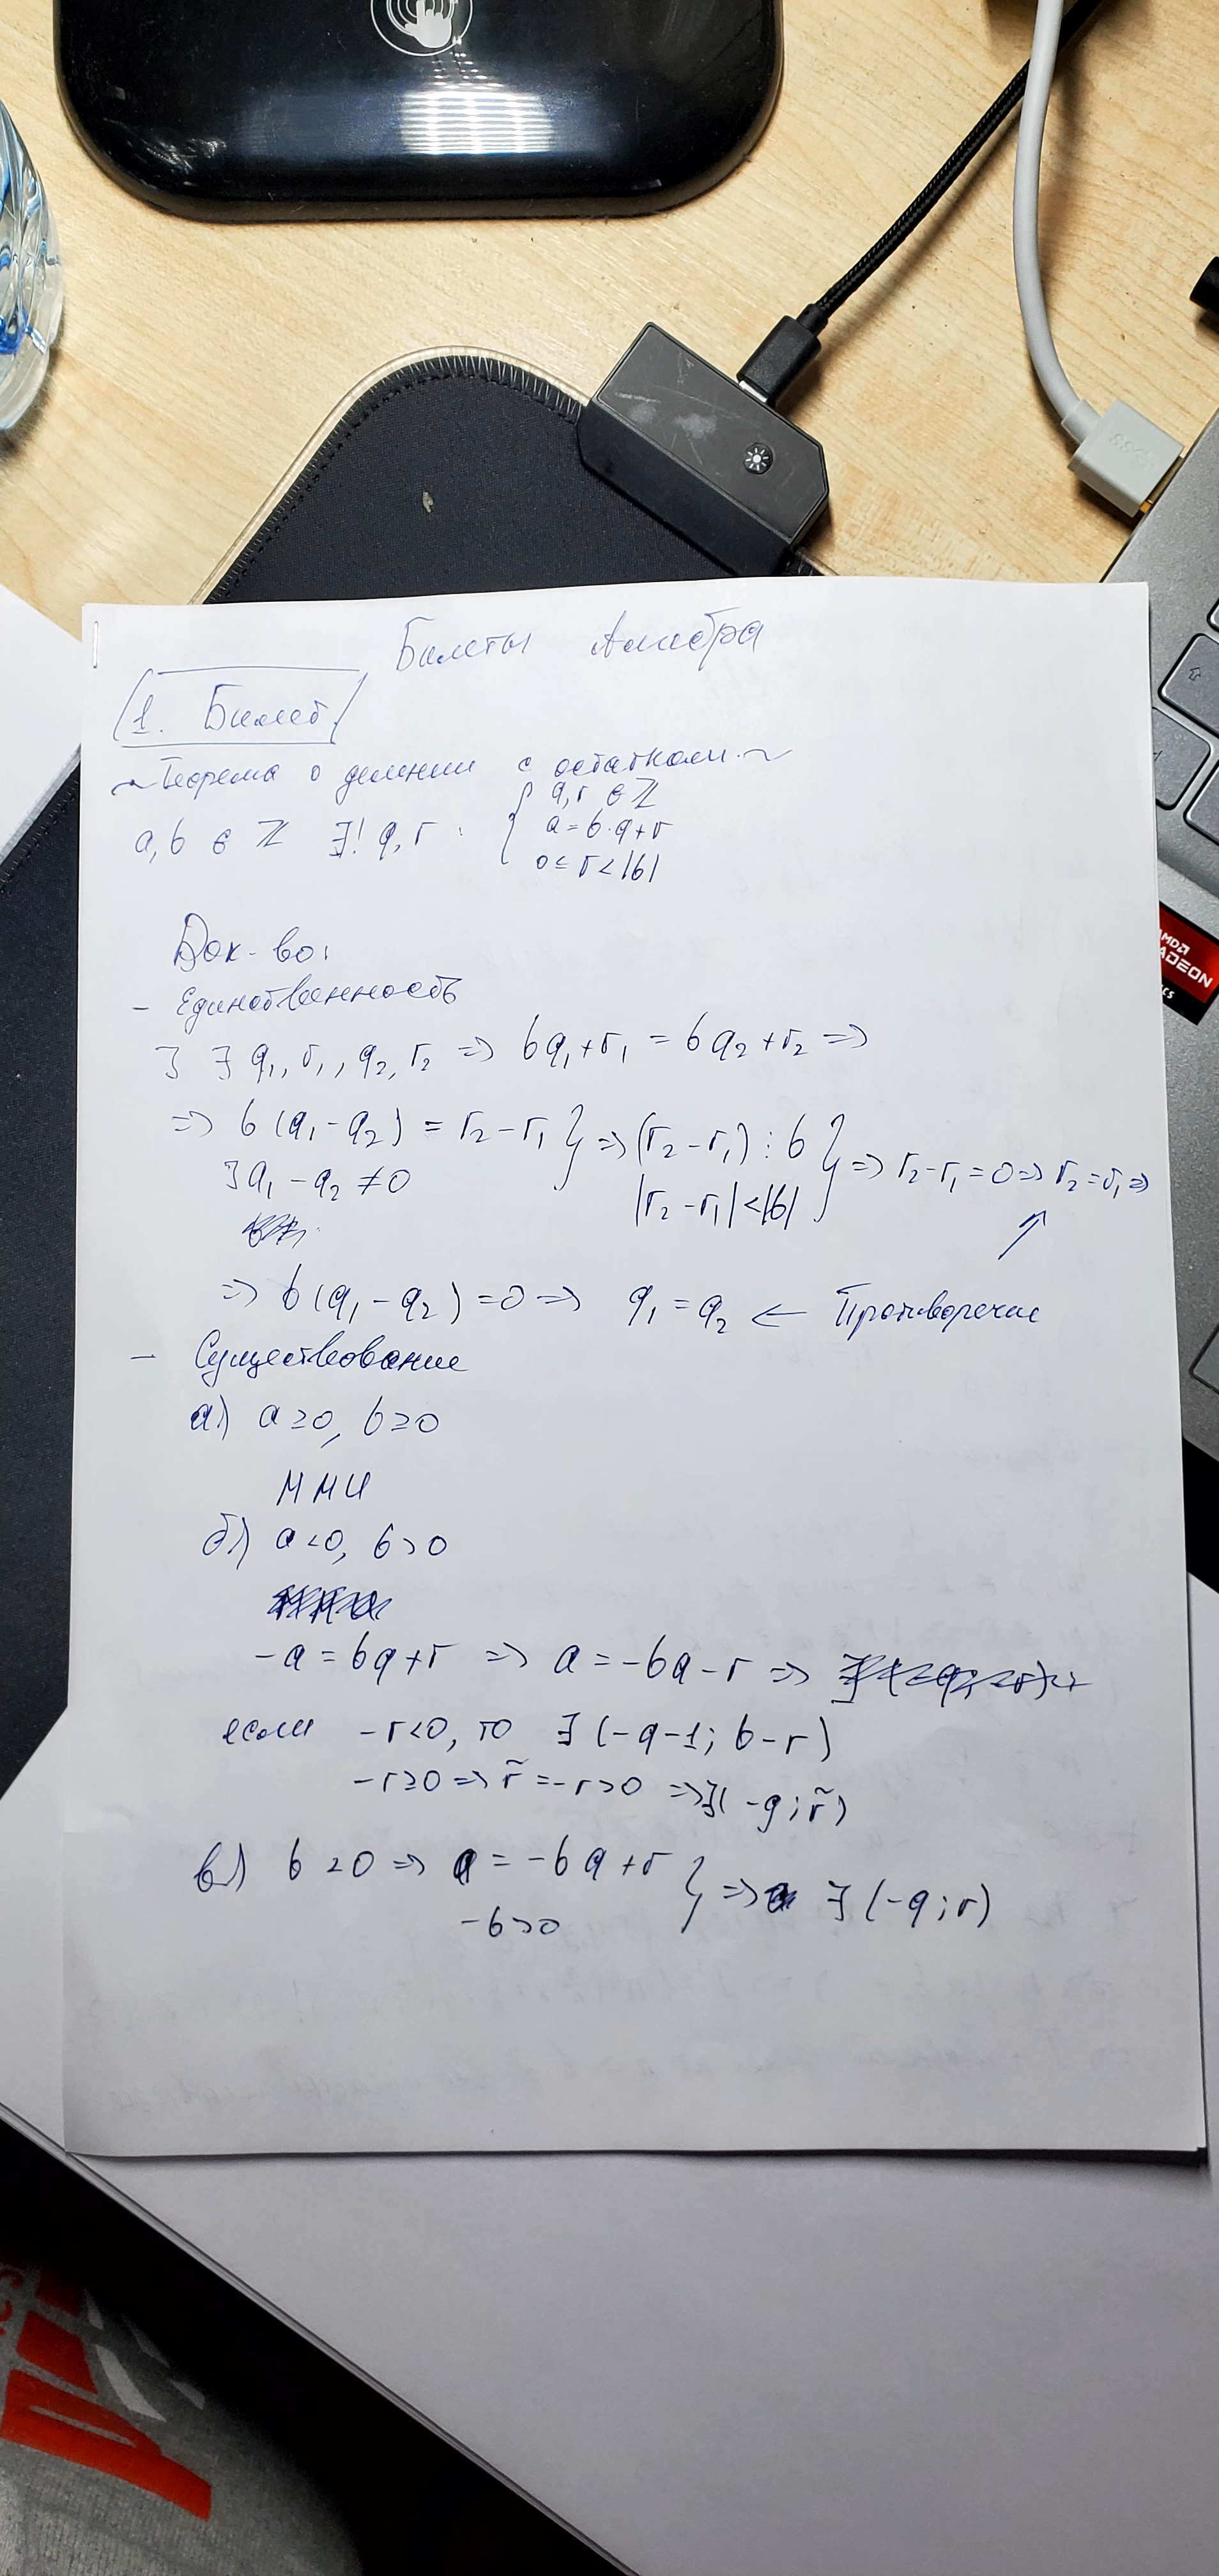 Билеты Алгебра
1. Билет
~ Теорема о делении с остатком. ~
a, b ∈ ℤ ∃! q, r :
{ q, r ∈ ℤ
a = b·q + r
0 ≤ r < |b|
Док-во:
- Единственность
] ∃ q₁, r₁, q₂, r₂ => bq₁ + r₁ = bq₂ + r₂ =>
=> b(q₁ - q₂) = r₂ - r₁ } => (r₂ - r₁) ⋮ b } => r₂ - r₁ = 0 => r₂ = r₁ =>
] q₁ - q₂ ≠ 0 |r₂ - r₁| < |b|
=> b(q₁ - q₂) = 0 => q₁ = q₂ ← Противоречие
- Существование
а) a ≥ 0, b ≥ 0
ММИ
б) a < 0, b > 0
-a = bq + r => a = -bq - r =>
если -r < 0, то ∃ (-q-1; b-r)
-r ≥ 0 => r̃ = -r > 0 => ∃ (-q; r̃)
в) b < 0 => a = -bq + r } => ∃ (-q; r)
-b > 0
AMD
RADEON